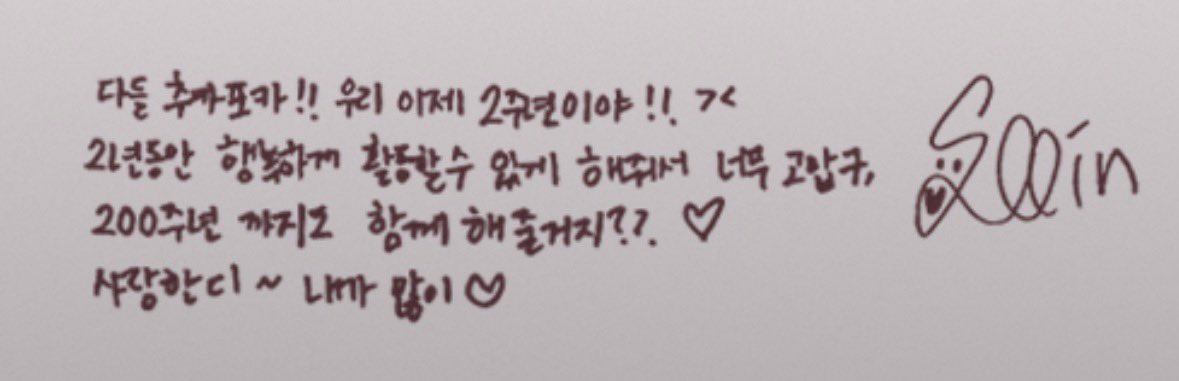 다들 추카포카!! 우리 이제 2주년이야!! ><
2년동안 행복하게 활동할수 있게 해줘서 너무 고맙구,
200주년 까지도 함께 해줄거지??. ♡
사랑한디 ~ 내까 많이♡